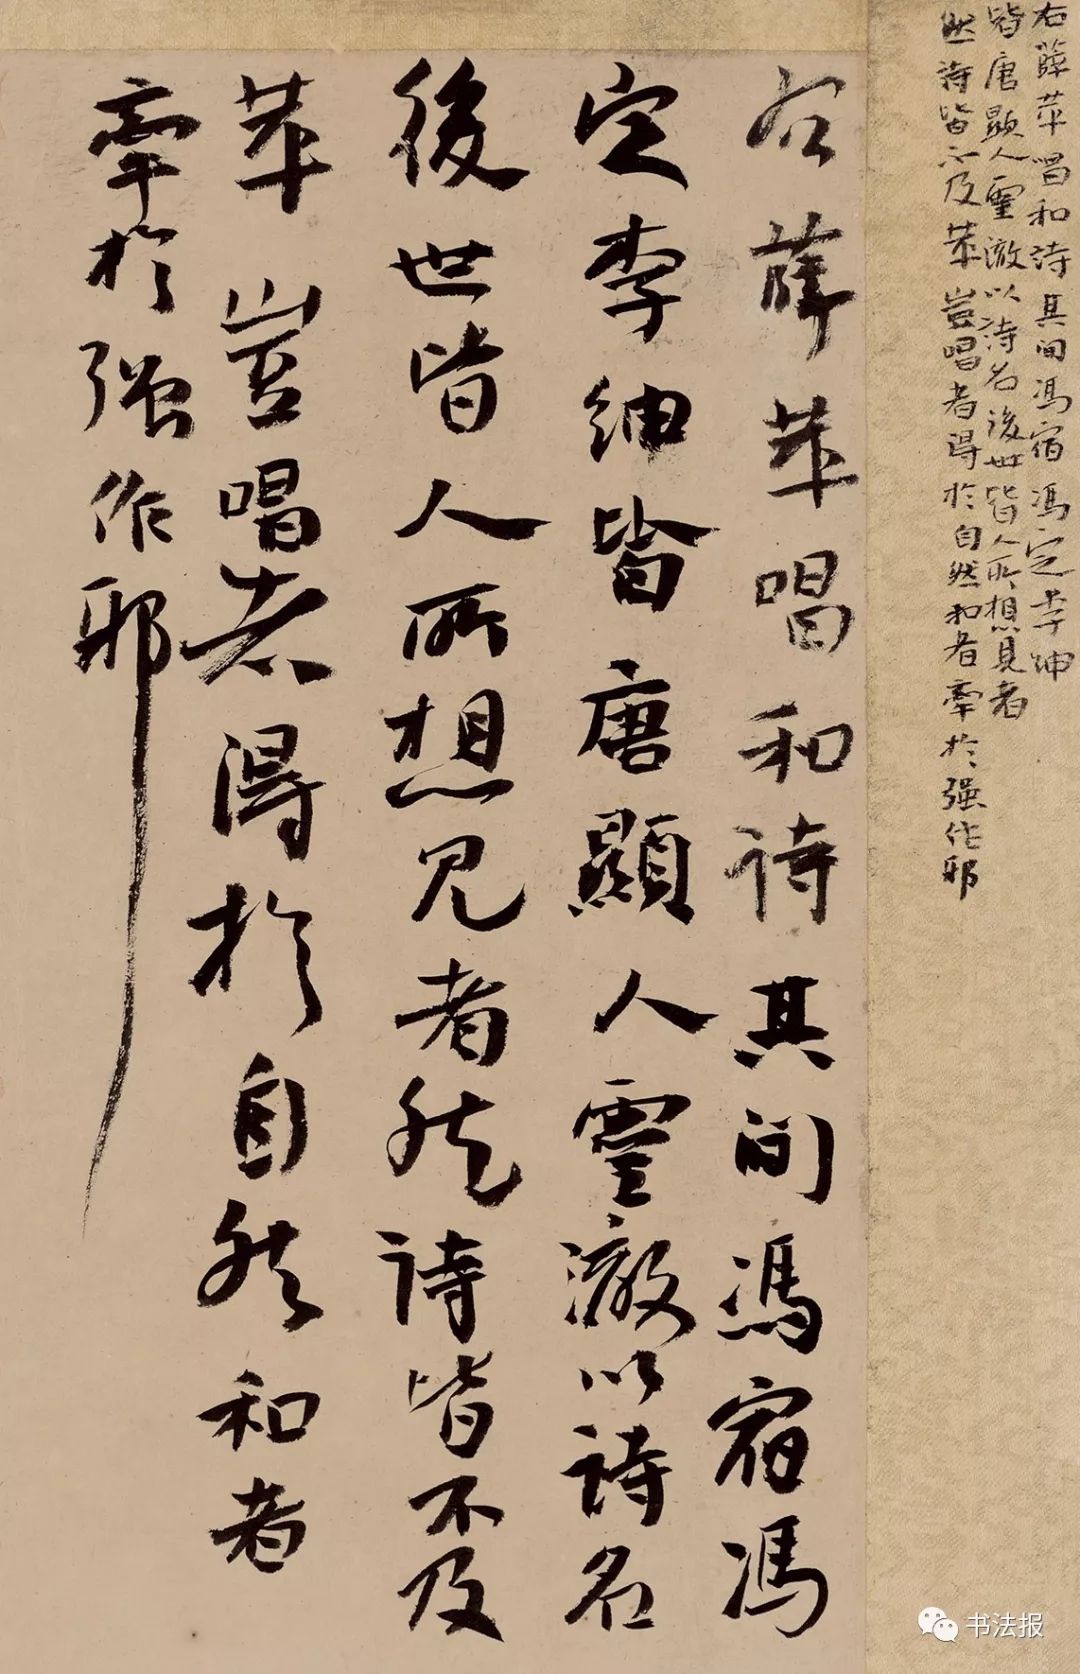 右薛苹唱和詩其間馮宿馮定李紳
皆唐顯人靈澈以詩名後世皆人所想見者
然詩皆不及苹豈唱者得於自然和者牽於强作邪
右薛苹唱和詩其間馮宿馮
定李紳皆唐顯人靈澈以詩名
後世皆人所想見者然詩皆不及
苹豈唱者得於自然和者
牽於强作邪
书法报